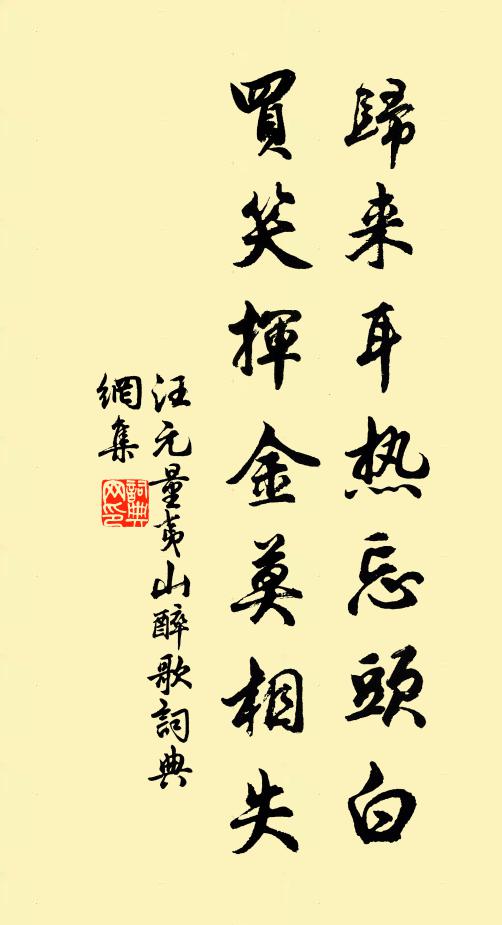 歸来耳热忘頭白
買笑揮金莫相失
汪元量夷山醉歌詞典
網集
詞典
网印